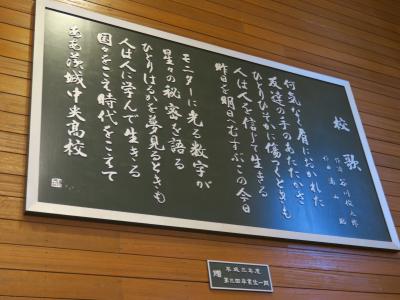 校歌
作詞 谷川俊太郎
作曲 湯山 昭
何気なく肩におかれた
友達の手のあたたかさ
ひとりひそかに傷つくときも
人は人を信じて生きる
昨日を明日へむすぶこの今日
モニターに光る数字が
星々の秘密を語る
ひとりはるかを夢見るときも
人は人に学んで生きる
国々をこえ時代をこえて
ああ茨城中央高校
贈
平成三年度
第三回卒業生一同